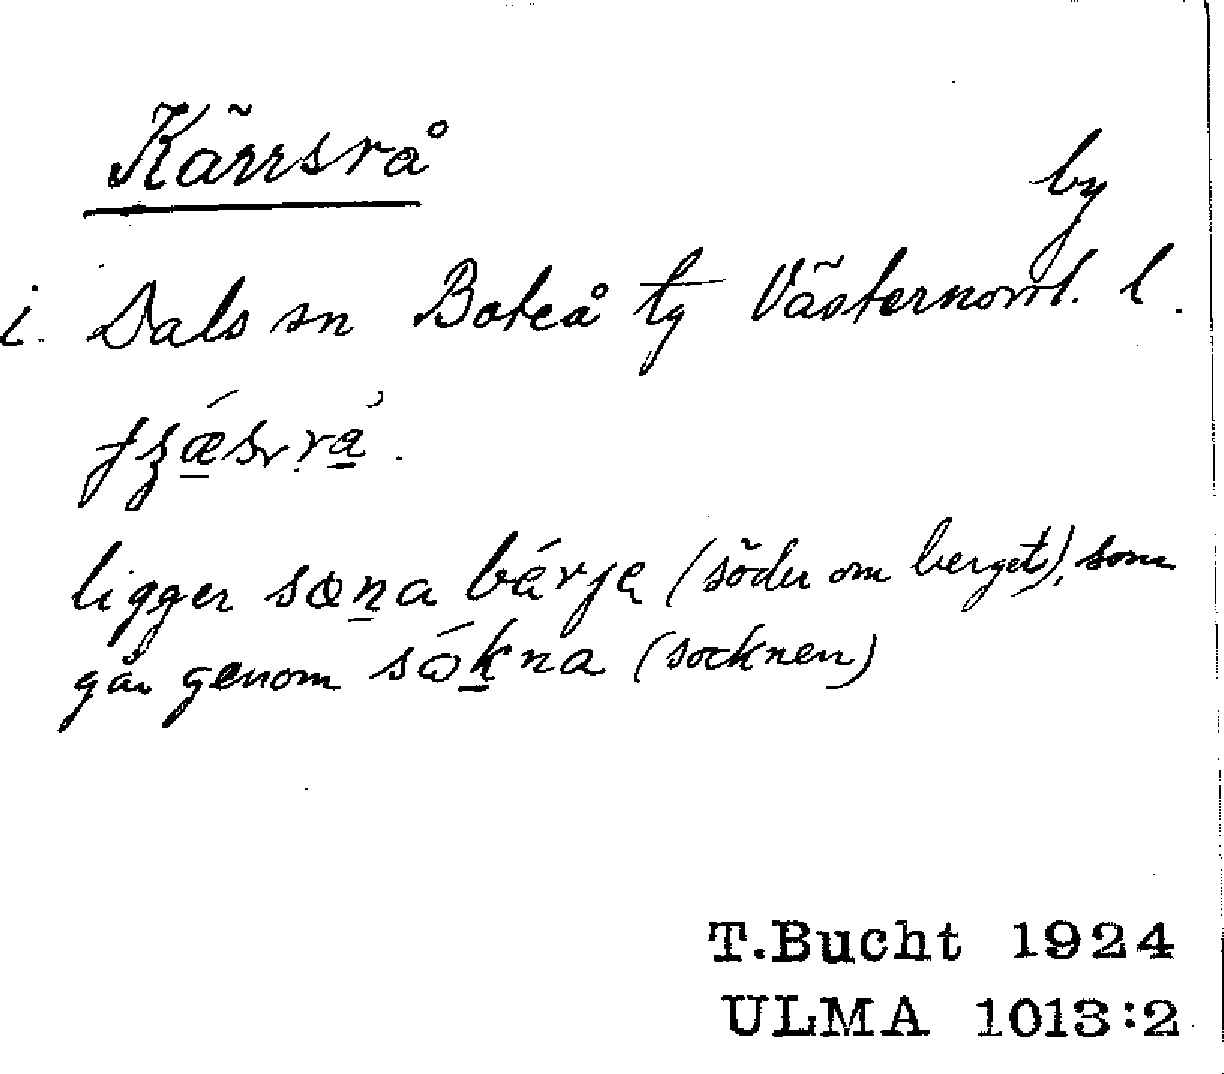 Kärrsrå
by
i Dals sn Boteå tg Västernorrl. l.
ligger sœṉa bárje (söder om berget), som
går genom sóḵna (socknen)
T.Bucht 1924
ULMA 1013:2